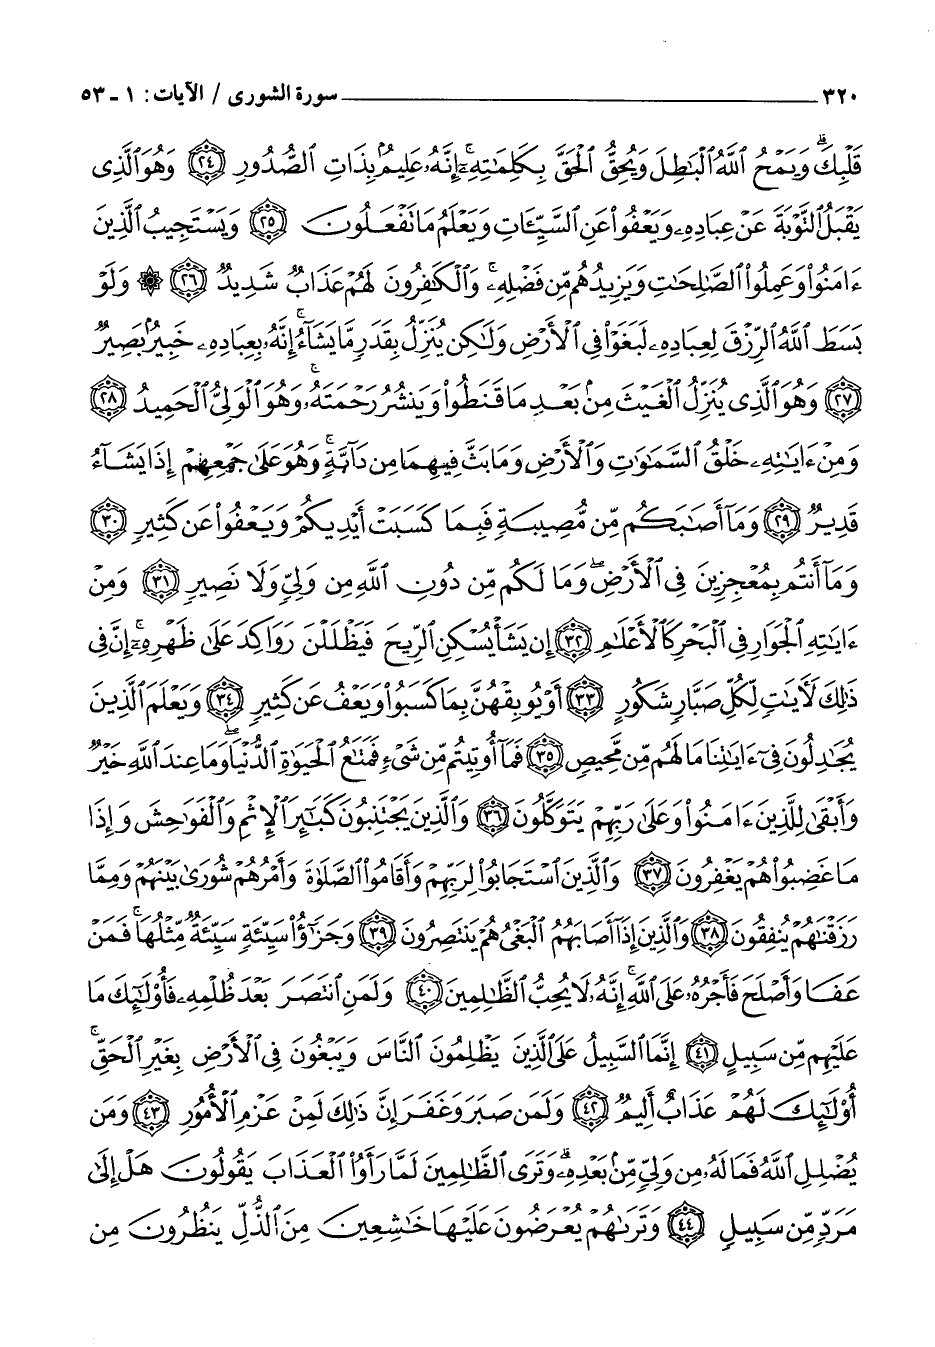 ٣٢٠ سورة الشورى / الآيات: ١ ـ ٥٣
قَلْبِكَ وَيَمْحُ ٱللَّهُ ٱلْبَٰطِلَ وَيُحِقُّ ٱلْحَقَّ بِكَلِمَٰتِهِۦٓ إِنَّهُۥ عَلِيمٌۢ بِذَاتِ ٱلصُّدُورِ ﴿٢٤﴾ وَهُوَ ٱلَّذِى
يَقْبَلُ ٱلتَّوْبَةَ عَنْ عِبَادِهِۦ وَيَعْفُوا۟ عَنِ ٱلسَّيِّـَٔاتِ وَيَعْلَمُ مَا تَفْعَلُونَ ﴿٢٥﴾ وَيَسْتَجِيبُ ٱلَّذِينَ
ءَامَنُوا۟ وَعَمِلُوا۟ ٱلصَّٰلِحَٰتِ وَيَزِيدُهُم مِّن فَضْلِهِۦ ۚ وَٱلْكَٰفِرُونَ لَهُمْ عَذَابٌ شَدِيدٌ ﴿٢٦﴾ ۞ وَلَوْ
بَسَطَ ٱللَّهُ ٱلرِّزْقَ لِعِبَادِهِۦ لَبَغَوْا۟ فِى ٱلْأَرْضِ وَلَٰكِن يُنَزِّلُ بِقَدَرٍ مَّا يَشَآءُ ۚ إِنَّهُۥ بِعِبَادِهِۦ خَبِيرٌۢ بَصِيرٌ
﴿٢٧﴾ وَهُوَ ٱلَّذِى يُنَزِّلُ ٱلْغَيْثَ مِنۢ بَعْدِ مَا قَنَطُوا۟ وَيَنشُرُ رَحْمَتَهُۥ ۚ وَهُوَ ٱلْوَلِىُّ ٱلْحَمِيدُ ﴿٢٨﴾
وَمِنْ ءَايَٰتِهِۦ خَلْقُ ٱلسَّمَٰوَٰتِ وَٱلْأَرْضِ وَمَا بَثَّ فِيهِمَا مِن دَآبَّةٍ ۚ وَهُوَ عَلَىٰ جَمْعِهِمْ إِذَا يَشَآءُ
قَدِيرٌ ﴿٢٩﴾ وَمَآ أَصَٰبَكُم مِّن مُّصِيبَةٍ فَبِمَا كَسَبَتْ أَيْدِيكُمْ وَيَعْفُوا۟ عَن كَثِيرٍ ﴿٣٠﴾
وَمَآ أَنتُم بِمُعْجِزِينَ فِى ٱلْأَرْضِ ۖ وَمَا لَكُم مِّن دُونِ ٱللَّهِ مِن وَلِىٍّ وَلَا نَصِيرٍ ﴿٣١﴾ وَمِنْ
ءَايَٰتِهِ ٱلْجَوَارِ فِى ٱلْبَحْرِ كَٱلْأَعْلَٰمِ ﴿٣٢﴾ إِن يَشَأْ يُسْكِنِ ٱلرِّيحَ فَيَظْلَلْنَ رَوَاكِدَ عَلَىٰ ظَهْرِهِۦٓ ۚ إِنَّ فِى
ذَٰلِكَ لَءَايَٰتٍ لِّكُلِّ صَبَّارٍ شَكُورٍ ﴿٣٣﴾ أَوْ يُوبِقْهُنَّ بِمَا كَسَبُوا۟ وَيَعْفُ عَن كَثِيرٍ ﴿٣٤﴾ وَيَعْلَمَ ٱلَّذِينَ
يُجَٰدِلُونَ فِىٓ ءَايَٰتِنَا مَا لَهُم مِّن مَّحِيصٍ ﴿٣٥﴾ فَمَآ أُوتِيتُم مِّن شَىْءٍ فَمَتَٰعُ ٱلْحَيَوٰةِ ٱلدُّنْيَا ۖ وَمَا عِندَ ٱللَّهِ خَيْرٌ
وَأَبْقَىٰ لِلَّذِينَ ءَامَنُوا۟ وَعَلَىٰ رَبِّهِمْ يَتَوَكَّلُونَ ﴿٣٦﴾ وَٱلَّذِينَ يَجْتَنِبُونَ كَبَٰٓئِرَ ٱلْإِثْمِ وَٱلْفَوَٰحِشَ وَإِذَا
مَا غَضِبُوا۟ هُمْ يَغْفِرُونَ ﴿٣٧﴾ وَٱلَّذِينَ ٱسْتَجَابُوا۟ لِرَبِّهِمْ وَأَقَامُوا۟ ٱلصَّلَوٰةَ وَأَمْرُهُمْ شُورَىٰ بَيْنَهُمْ وَمِمَّا
رَزَقْنَٰهُمْ يُنفِقُونَ ﴿٣٨﴾ وَٱلَّذِينَ إِذَآ أَصَابَهُمُ ٱلْبَغْىُ هُمْ يَنتَصِرُونَ ﴿٣٩﴾ وَجَزَٰٓؤُا۟ سَيِّئَةٍ سَيِّئَةٌ مِّثْلُهَا ۖ فَمَنْ
عَفَا وَأَصْلَحَ فَأَجْرُهُۥ عَلَى ٱللَّهِ ۚ إِنَّهُۥ لَا يُحِبُّ ٱلظَّٰلِمِينَ ﴿٤٠﴾ وَلَمَنِ ٱنتَصَرَ بَعْدَ ظُلْمِهِۦ فَأُو۟لَٰٓئِكَ مَا
عَلَيْهِم مِّن سَبِيلٍ ﴿٤١﴾ إِنَّمَا ٱلسَّبِيلُ عَلَى ٱلَّذِينَ يَظْلِمُونَ ٱلنَّاسَ وَيَبْغُونَ فِى ٱلْأَرْضِ بِغَيْرِ ٱلْحَقِّ ۚ
أُو۟لَٰٓئِكَ لَهُمْ عَذَابٌ أَلِيمٌ ﴿٤٢﴾ وَلَمَن صَبَرَ وَغَفَرَ إِنَّ ذَٰلِكَ لَمِنْ عَزْمِ ٱلْأُمُورِ ﴿٤٣﴾ وَمَن
يُضْلِلِ ٱللَّهُ فَمَا لَهُۥ مِن وَلِىٍّ مِّنۢ بَعْدِهِۦ ۗ وَتَرَى ٱلظَّٰلِمِينَ لَمَّا رَأَوُا۟ ٱلْعَذَابَ يَقُولُونَ هَلْ إِلَىٰ
مَرَدٍّ مِّن سَبِيلٍ ﴿٤٤﴾ وَتَرَىٰهُمْ يُعْرَضُونَ عَلَيْهَا خَٰشِعِينَ مِنَ ٱلذُّلِّ يَنظُرُونَ مِن